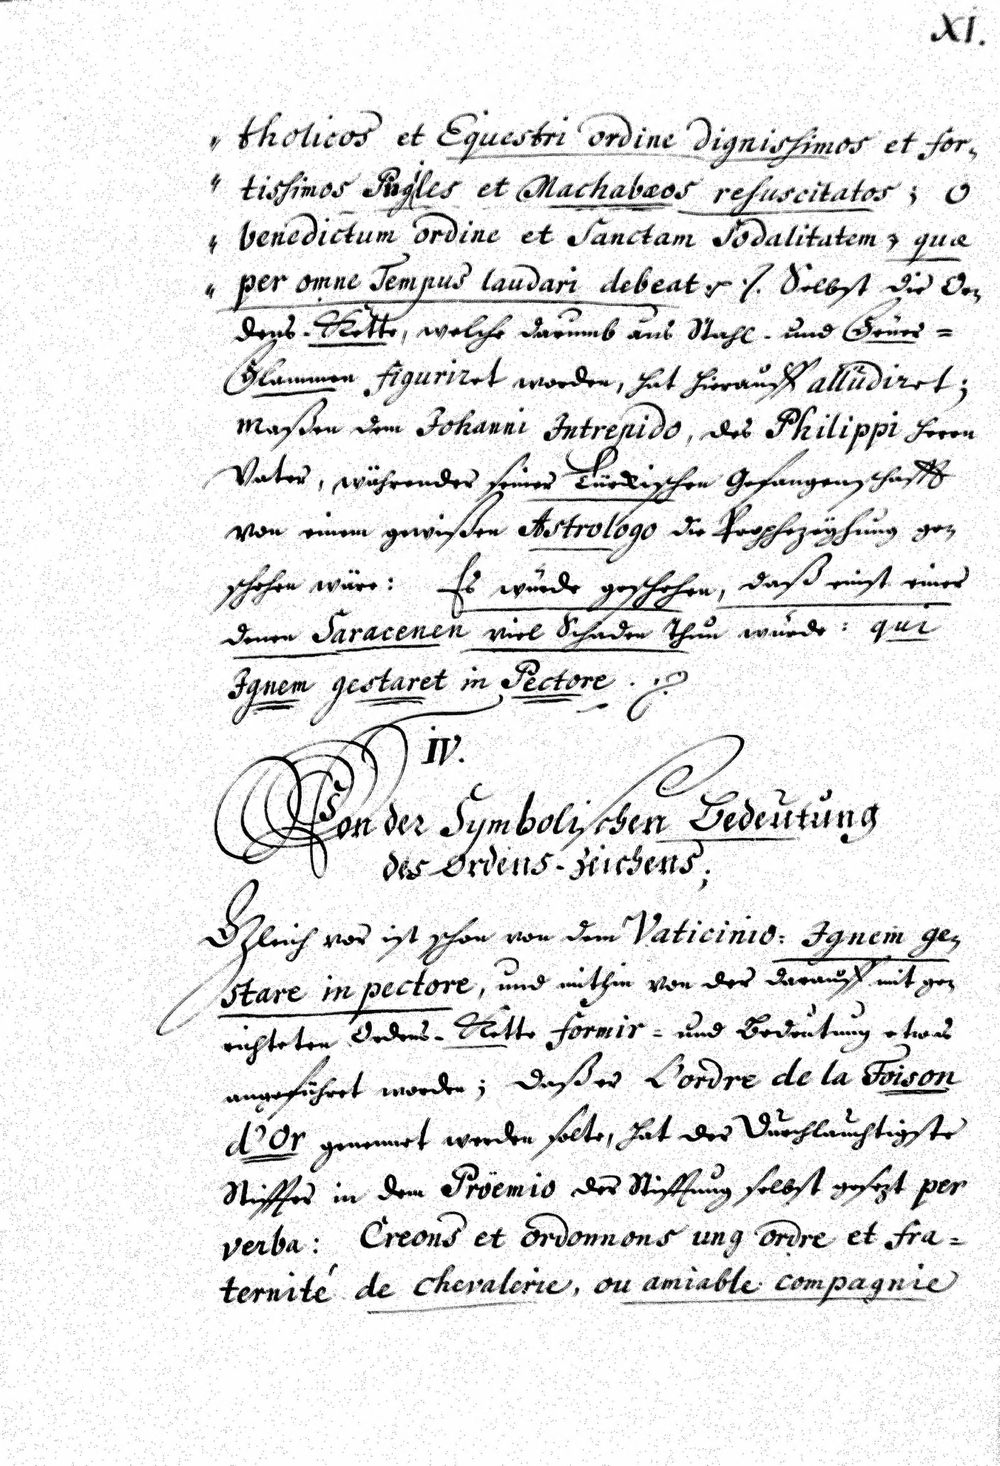 XI.
" tholicos et Equestri ordine dignissimos et for-
" tissimos Pugiles et Machabæos resuscitatos; O
" benedictum ordine et Sanctam Sodalitatem, quæ
" per omne Tempus laudari debeat ./. Selbst die Or-
dens-Kette, welche darumb aus Stahl- und Feüer=
Flammen figuriret worden, hat hierauff allüdiret;
Maßen dem Johanni Intrepido, des Philippi Herrn
Vater, währender seiner Türckischen Gefangenschafft
von einem gewißen Astrologo die Prophezeÿhung ge-
schehen wäre: Es würde geschehen, daß einst einer
denen Saracenen viel Schaden Thun würde: qui
Ignem gestaret in Pectore.
IV.
Von der Symbolischen Bedeütüng
des Ordens-Zeichens;
Gleich vor ist schon von dem Vaticinio: Ignem ge-
stare in pectore, und mithin von der darauff mit ge-
richteten Ordens-Kette formir= und Bedeutung etwas
angeführet worden; Daß er L'ordre de la Toison
d'Or genennet werden solte, hat der Durchlauchtigste
Stiffter in dem Pröemio der Stifftung selbst gesezt per
verba: Creons et ordonnons ung ordre et fra=
ternité de chevalerie, ou amiable compagnie